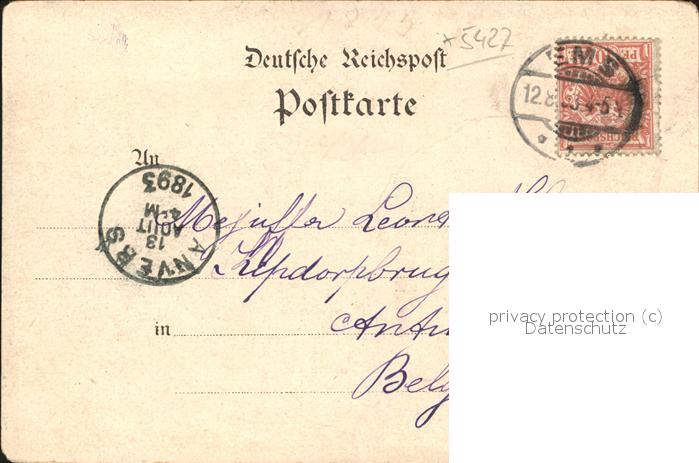 +5427
Deutsche Reichspost
Postkarte
EMS
12.8.93 4-5N
An
ANVERS
13
AOUT
4-M
1893
Mejuffer Leon
Kepdorpbrug
in Antw
Belg
privacy protection (c)
Datenschutz